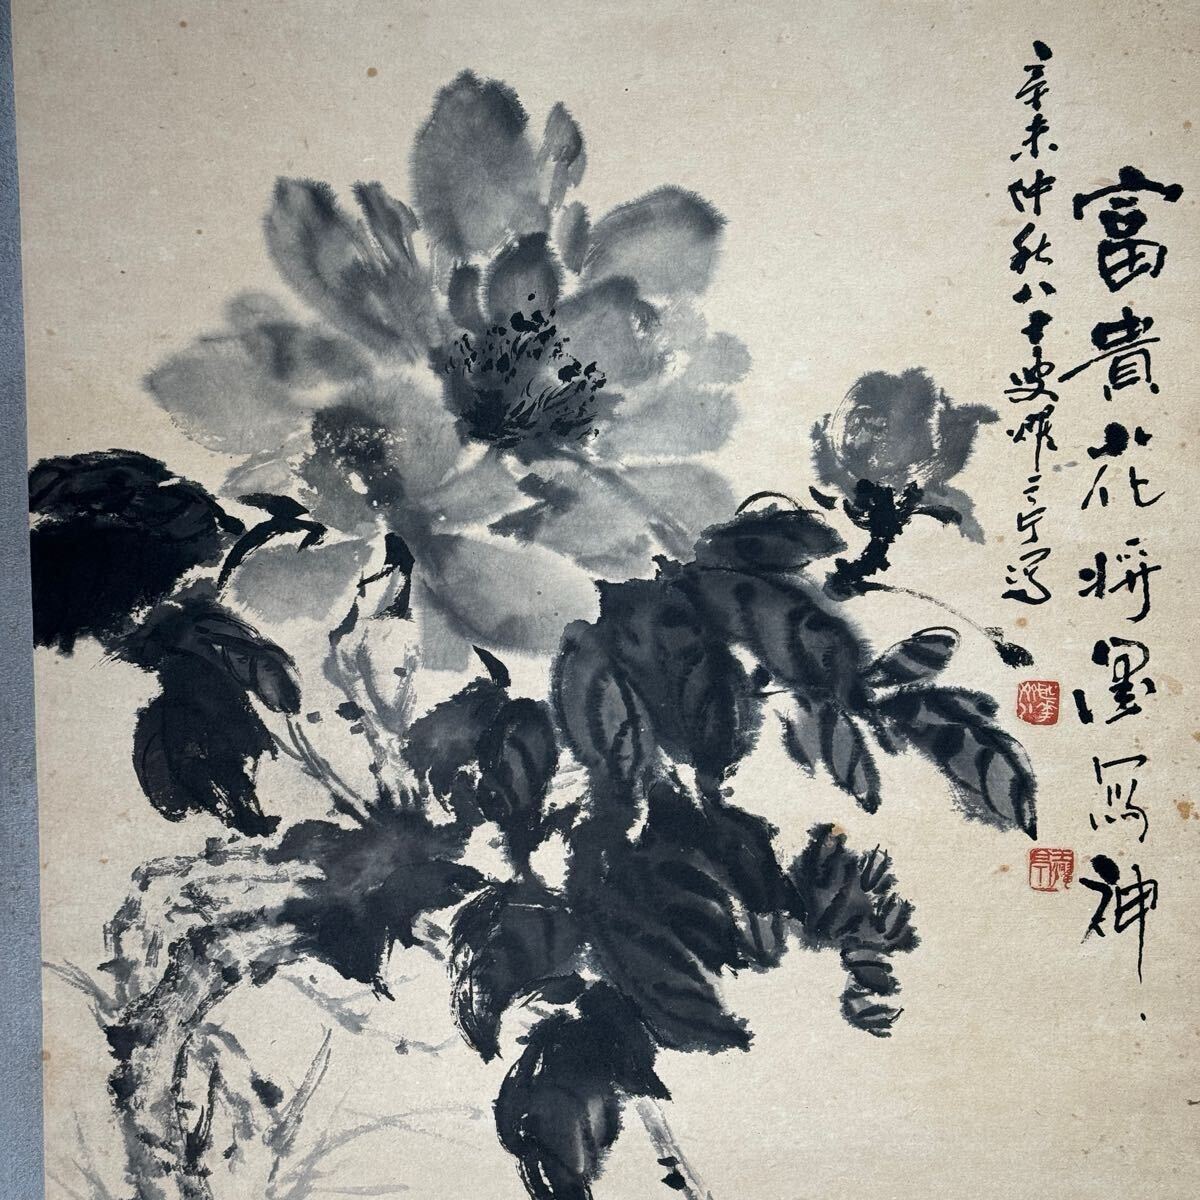 富貴花將墨寫神
辛未仲秋八十叟耀
寫